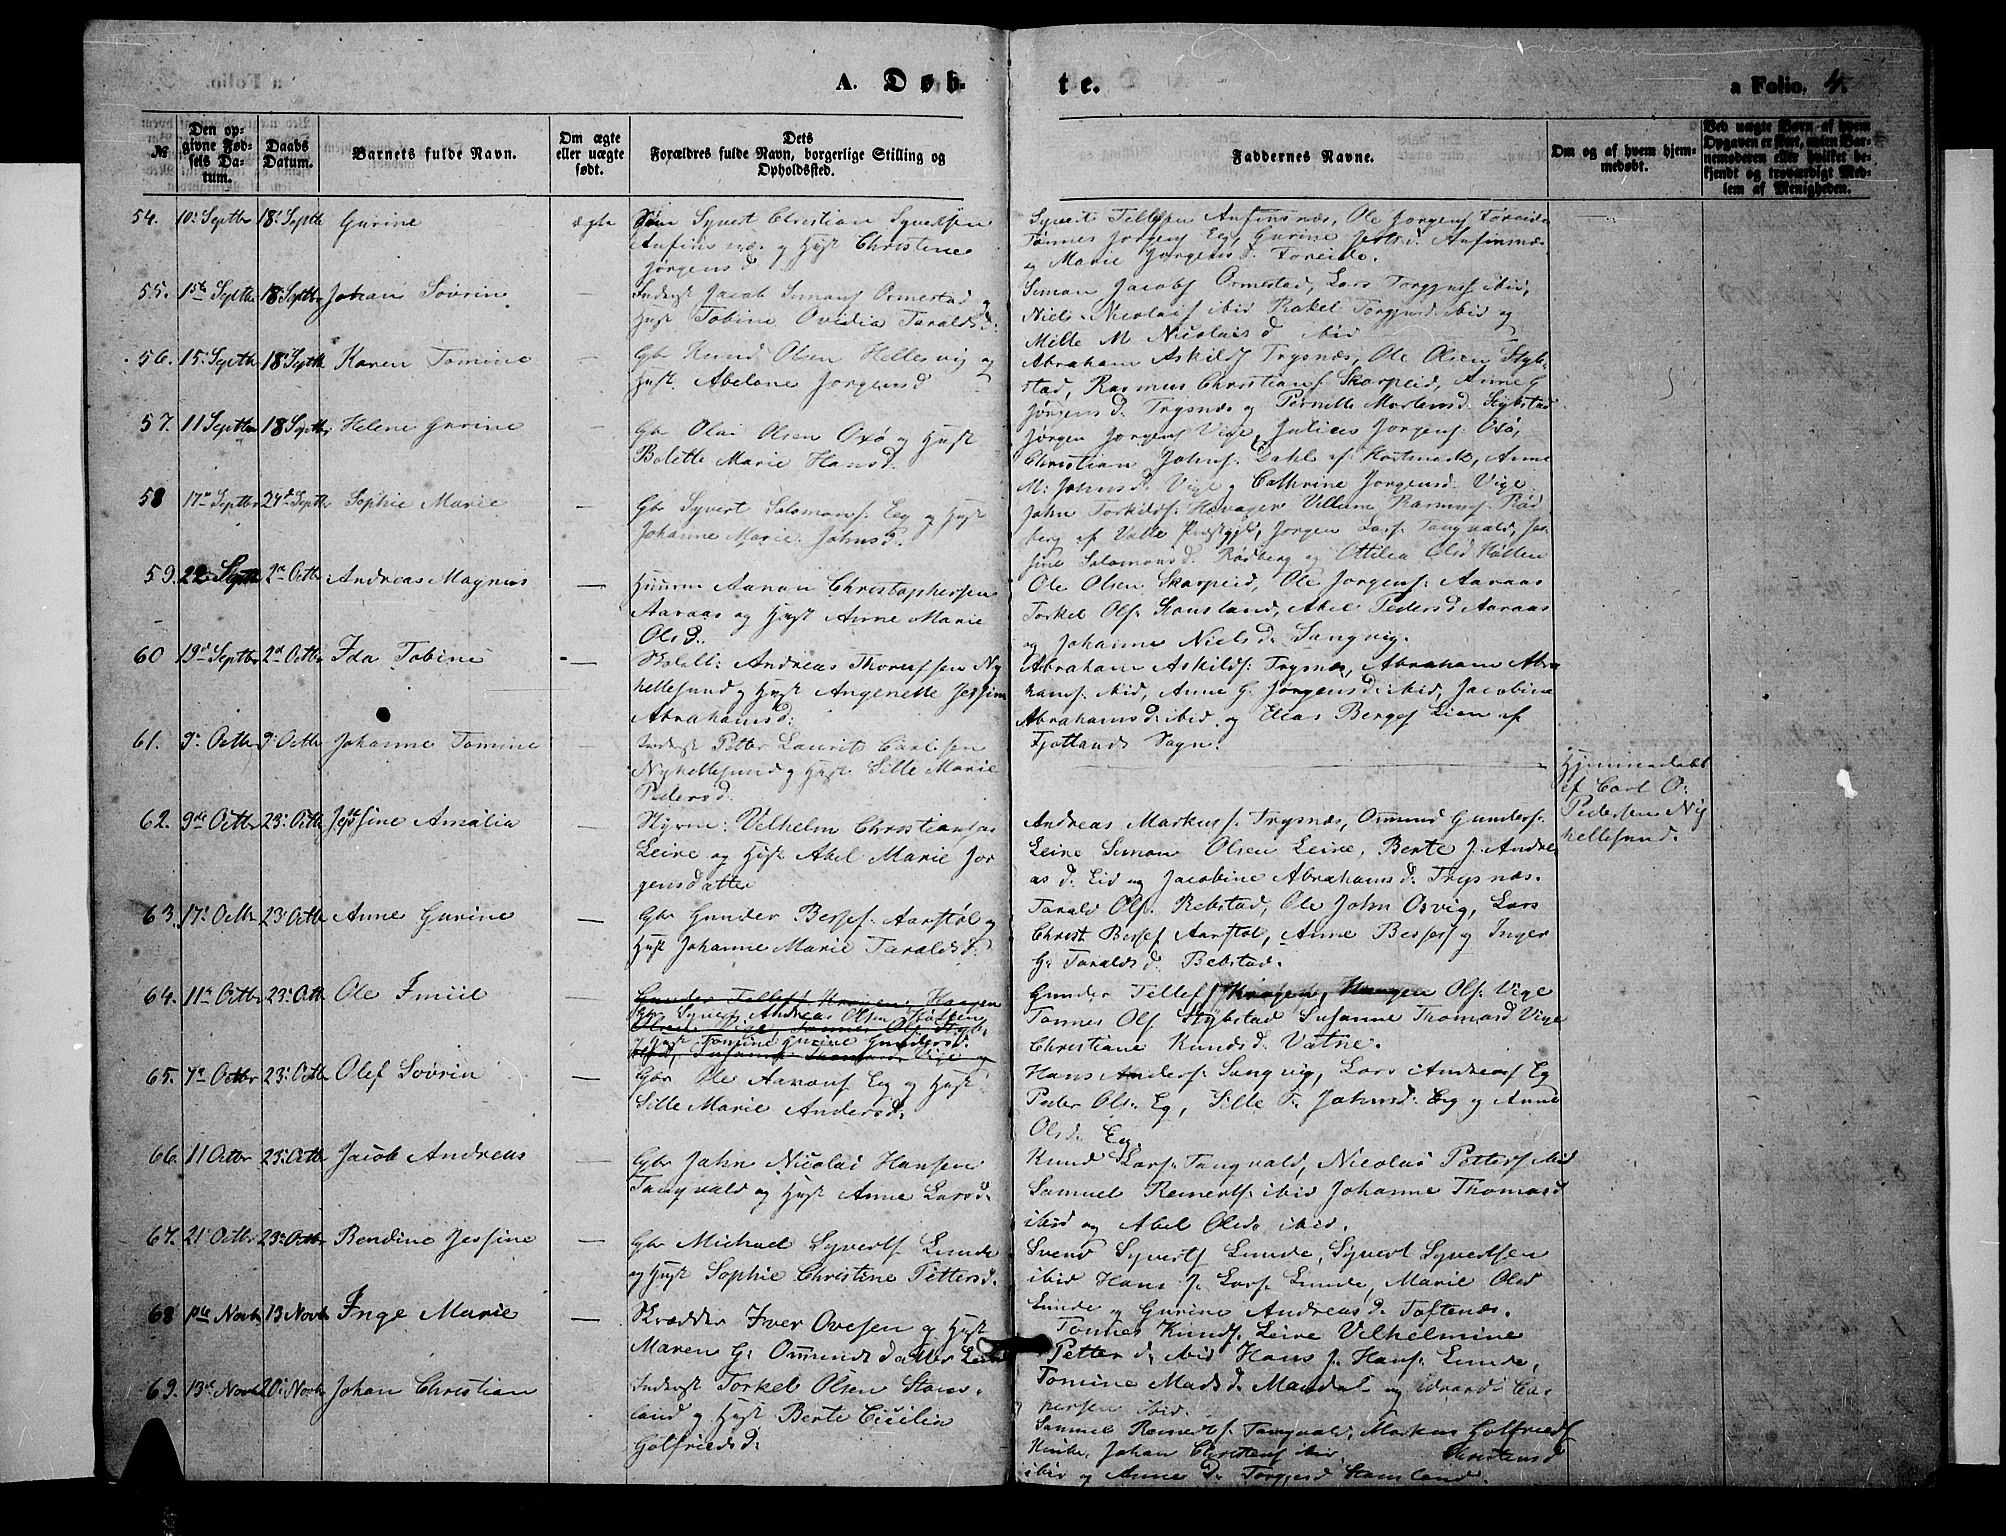 A. Døb-
te.
a Folio. 4.
№
Den op-
givne Fød-
sels Da-
tum.
Daabs
Datum.
Barnets fulde Navn.
Om ægte
eller uægte
født.
Dets
Forældres fulde Navn, borgerlige Stilling og
Opholdssted.
Faddernes Navne.
Om og af hvem hjem-
medøbt.
Ved uægte Børn af hvem
Opgaven er skeet, enten Bar-
nemoderen eller hvilket be-
kjendt og troværdigt Med-
lem af Menigheden.
54. 10. Septbr 18. Septb Gurine ægte Syvert Christian Syvertsen
Anfinsnæs og Hust Christine
Jørgensd
Syvert Tellefsen Anfinsnæs, Ole Jørgens Foreide
Tønnes Jørgens Eg, Gurine Anfinsnæs
og Marie Jørgensd. Foreide.
55. 15 Septbr 18. Septbr Johan Sovrin — Inderst Jacob Simons Ormestad og
Hust Tobine Ovidia Taraldsd.
Simon Jacobs Ormestad, Lars Torgjus. ibid,
Niels Nicolais ibid Rakel Torgjusd. ibid og
Mille M Nicolaisd ibid
56. 15. Septbr 18. Septb Karen Tomine — Gbr Knud Olsen Hellesvig og
Hust. Abelone Jørgensd
Abraham Askilds Trysnæs, Ole Olsen Styb-
stad, Rasmus Christians. Skarpeid, Anne G
Jørgensd. Trysnæs og Pernille Mortensd. Stybstad
57. 11 Septbr 18 Septbr Helene Gurine — Gbr Olai Olsen Oxø og Hust
Bolette Marie Hansd.
Jørgen Jørgens Vige, Julius Jørgens. Oxø,
Christian Johns. Dahl af Anne
M: Johnsd. Vige og Cathrine Jørgensd. Vige.
58 17 Septbr 24 Septbr Sophie Marie — Gbr Syvert Salomons. Eg og Hust
Johanne Marie Johnsd.
John Torkilds. Villum Rasmus. Rød
berg af Valle Præstgjld, Jørgen Lars. Tangvald, Jos
sine Salomonsd. Rødberg og Ottilia Olsd Hallen
59. 22 Septb 2 Octbr Andreas Magnus — Huusm Aanon Christophersen
Aaraas og Hust Anne Marie
Olsd.
Ole Olsen Skarpeid, Ole Jørgens. Aaraas
Torkel Ols. Stausland, Abel Pedersd Aaraas
og Johanne Nielsd. Langvig.
60 19 Septbr 2 Octbr Ida Tobine — Andreas Thorersen Ny
hellesund og Hust Angenette Jessine
Abrahamsd:
Abraham Askilds: Trysnæs, Abraham Abra
hams. ibid, Anne G. Jørgensd. ibid, Jacobine
Abrahamsd. ibid. og Elias Bergs Lien af
Fjotlands Sogn.
61. 9. Octbr 9. Octbr Johanne Tomine — Inderst Petter Laurits Carlsen
Nyhellesund og Hust Sille Marie
Pedersd.
Hjemmedøbt
af Carl O.
Pedersen Ny
hellesund.
62. 9de Octbr 23. Octbr Jessine Amalia — Styrm: Vilhelm Christians
Leire og Hust Abel Marie Jør
gensdatter
Andreas Markus. Trysnæs, Ommund Gunders.
Leire Simon Olsen Leire, Berte J. Andre
asd. Eid og Jacobine Abrahamsd. Trysnæs.
63. 17. Octbr 23 Octbr Anne Gurine — Gbr Gunder Berges. Aarstøl og
Hust Johanne Marie Taraldsd.
Tarald Ols. Rebstad, Ole John Osvig, Lars
Christ Aarstøl, Anne og Inger
G: Taraldsd. Bebstad.
64. 11 Octbr 23. Octb Ole Emiil —
Gbr Syvert Andreas Olsen
og Hust Tomine Gurine Gundersd.
Gunder Tellefs Ols. Vige
Tønnes Ols Stybstad Susanne Thomasd Vige
Christiane Knudsd. Vatne.
65. 7 Octbr 23. Octbr Olef Sovrin — Gbr Ole Aanons Eg og Hust
Sille Marie Andersd.
Hans Anders. Langvig, Lars Andreas Eg
Peder Ols. Eg, Sille T. Johnsd. Eg og Anne
Olsd. Eg.
66. 11 Octbr 23. Octbr Jacob Andreas — Gbr John Nicolai Hansen
Tangvald og Hust Anne Larsd.
Knud Lars. Tangvald, Nicolai Petters ibid
Samuel Reinerts. ibid Johanne Thomasd
ibid og Abel Olsd. ibid.
67. 21 Octbr 23. Octbr Bendine Jessine — Gbr Michael Syverts Lunde
og Hust Sophie Christine Pettersd.
Svend Syverts Lunde, Syvert Syvertsen
ibid Hans J. Lars. Lunde, Marie Olsd
Lunde og Gurine Andreasd. Toftenæs.
68 1ste Novb 13 Novb Inge Marie — Skrædder Iver Ovesen og Hust
Maren G: Ommundsdatter Leire
Tønnes Knuds. Leire Vilhelmine
Petterd. ibid Hans J. Hans. Lunde,
Tomine Madsd. Mandal og Edvard Cas
persen ibid.
69. 13 Novb 20. Novb Johan Christian — Inderst Torkel Olsen Staus-
land og Hust Berte Cicilia
Gotfriedsd.
Samuel Reinerts. Tangvald, Markus Gotfrieds
Johan Christens ibid, Christensd
ibid og Anne d. Torgjusd Stausland.